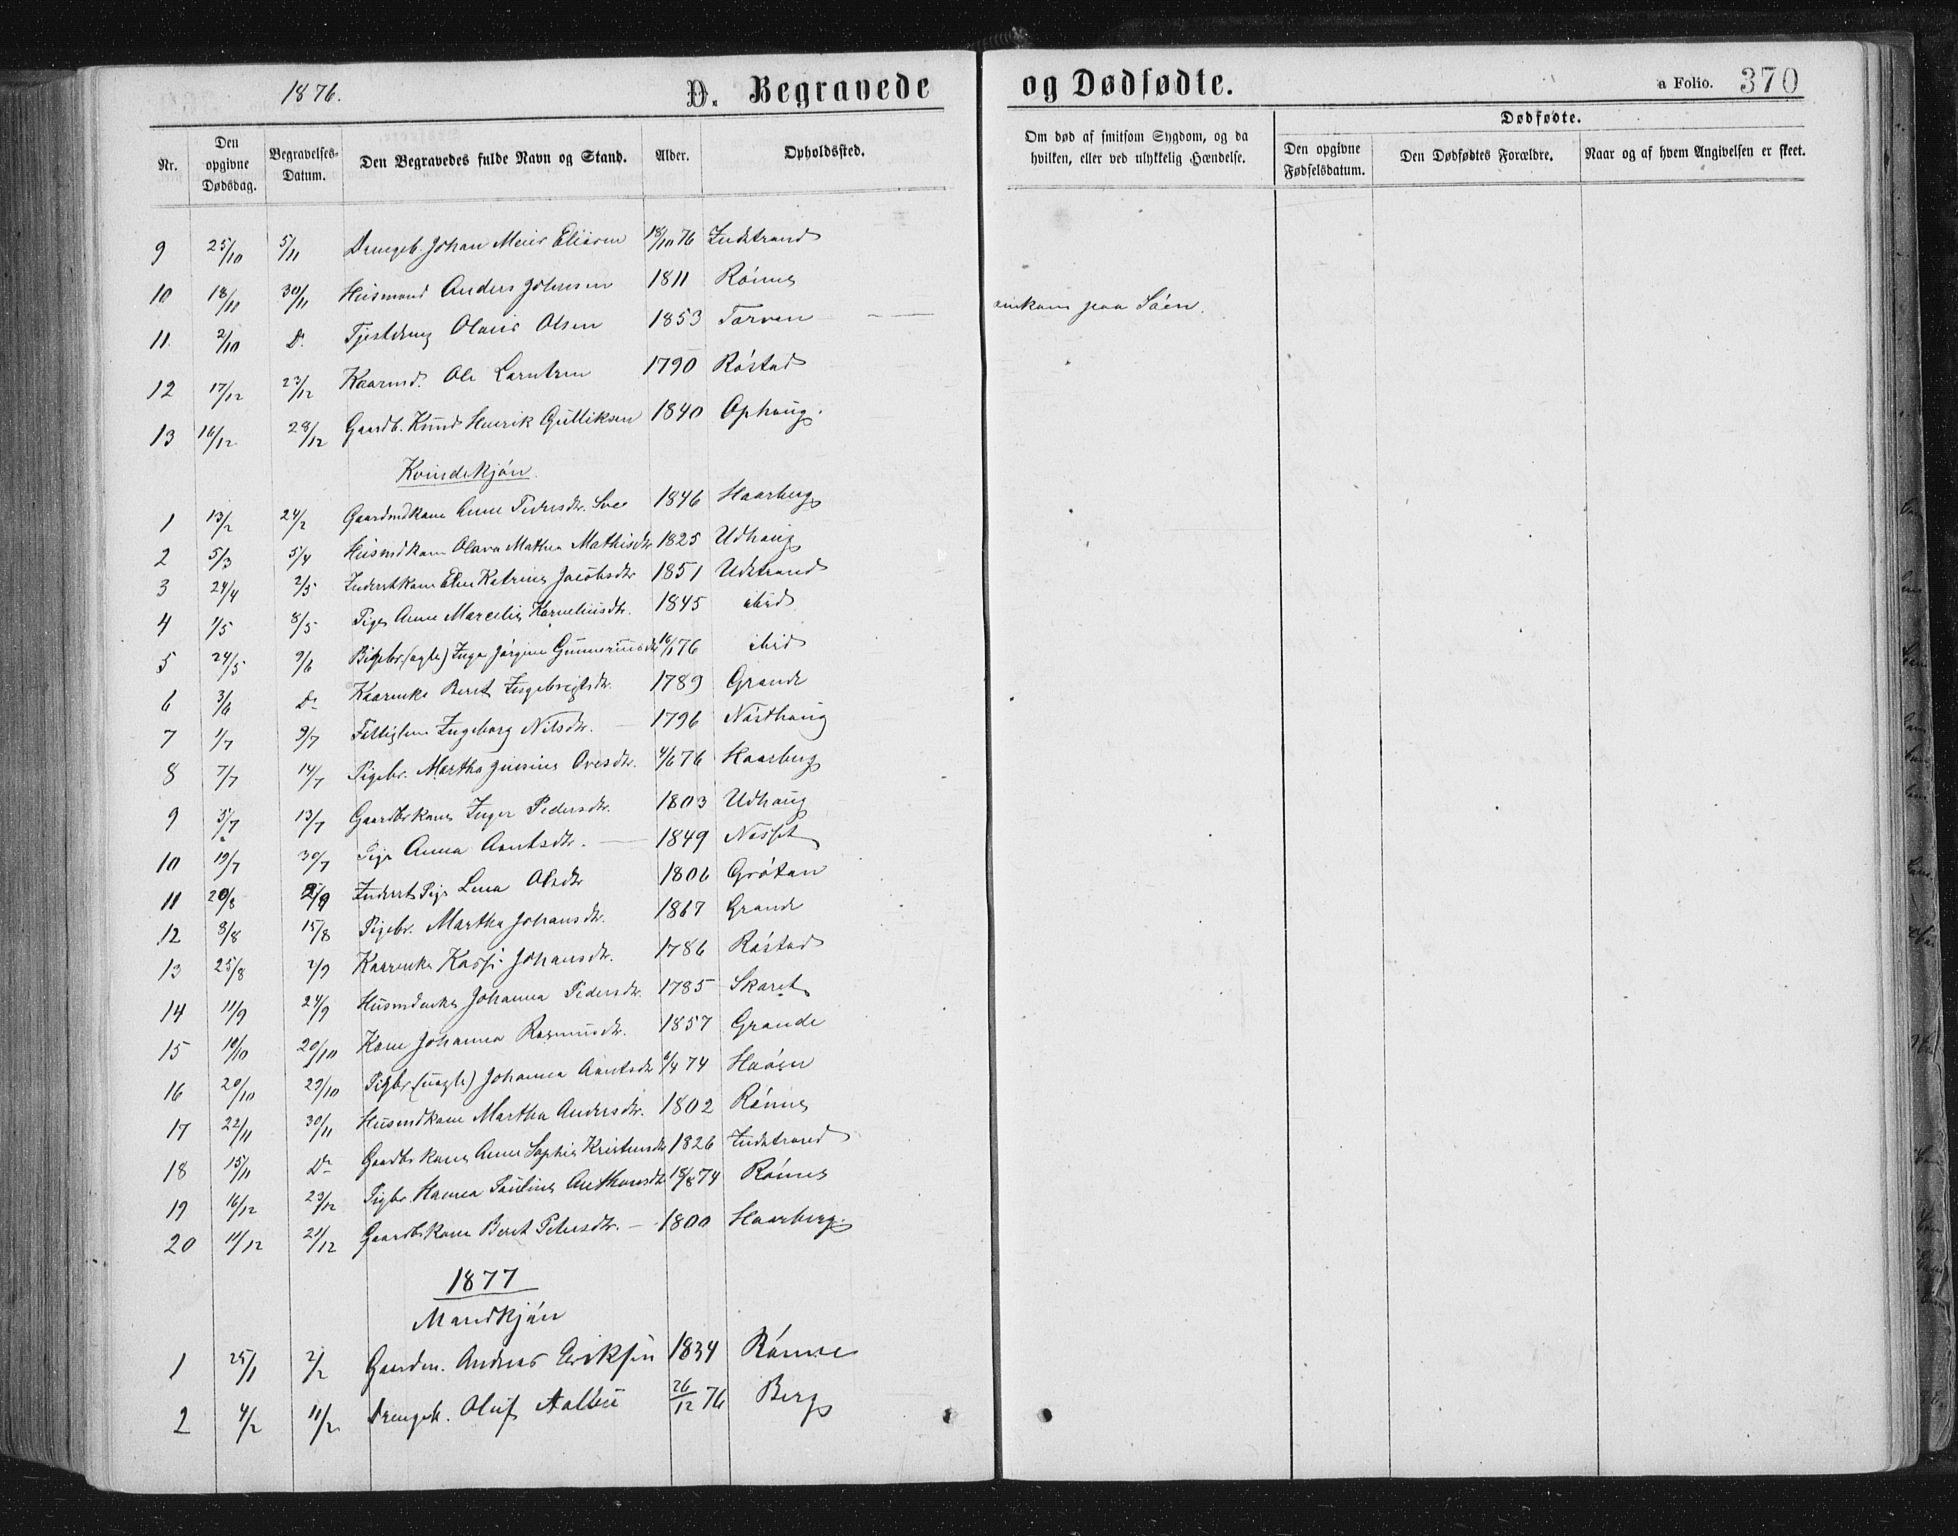 1876.
D. Begravede og Dødfødte.
a Folio. 370
Nr.
Den opgivne Dødsdag.
Begravelses-Datum.
Den Begravedes fulde Navn og Stand.
Alder.
Opholdssted.
Om død af smitsom Sygdom, og da hvilken, eller ved ulykkelig Hændelse.
Dødfødte.
Den opgivne Fødselsdatum.
Den Dødfødtes Forældre.
Naar og af hvem Angivelsen er skeet.
9 25/10 5/11 Drengeb. Johan Meier Eliasen 18/10 76 Indstrand
10 18/11 30/11 Husmand Anders Johnsen 1811 Rønne
11 2/10 Do Tjestdreng Olaus Olsen 1853 Tarven — omkom paa Søen.
12 17/12 23/12 Kaarmd. Ole Larntsen 1790 Røstad
13 16/12 28/12 Gaardb. Knud Henrik Gulliksen 1840 Ophaug.
Kvindekjøn.
1 13/2 24/2 Gaardmdkone Anne Pedersdtr. 1846 Haarberg
2 5/3 5/4 Husmdkone Olava Mathea Mathisdtr 1825 Udhaug
3 24/4 2/5 Inderstkone Elen Katrine Jacobsdtr 1851 Udstrand
4 1/5 8/5 Pige Anne Marcelie Korneliusdtr. 1845 ibid
5 24/5 9/6 Pigebr. (ægte) Inga Jørgine Gunneriusdtr 16/1 76 ibid
6 3/6 Do Kaarenke Beret Ingebrigtsdtr. 1789 Grande
7 1/7 9/7 Fattiglem Ingeborg Nilsdtr. — 1796 Næsthaug
8 7/7 14/7 Pigebr. Martha Jensine Ovesdtr. 4/6 76 Haarberg
9 5/7 13/7 Gaardbrkone Inger Pedersdtr. 1803 Udhaug
10 19/7 30/7 Pige Anna Arntsdtr. — 1849 Nesset
11 20/8 2/9 Inderst Pige Lena Olsdtr 1806 Grøtan
12 8/8 15/8 Pigebr. Martha Johansdtr. 1867 Grande
13 25/8 2/9 Kaarenke Johansdtr. 1786 Røstad
14 11/9 24/9 Husmdenke Johanna Pedersdtr. 1785 Skaret
15 10/10 20/10 Kone Johanna Rasmusdtr. 1857 Grande
16 20/10 29/10 Pigbr (uægte) Johanna Arntsdtr 6/4 74 Haøen
17 22/11 30/11 Husmdkone Martha Andersdtr. 1802 Rønne
18 15/11 Do Gaardbrkone Anne Sophie Kristensdtr 1826 Indstrand
19 16/12 23/12 Pigbr. Hanna Pauline Anthonsdtr 18/8 74 Rønne
20 11/12 21/12 Gaardbkone Beret Petersdtr. — 1800 Haarberg.
1877
Mandkjøn
1 25/1 2/2 Gaardm. Andreas Eriksen 1834 Rønne
2 4/2 11/2 Drengeb. Oluf Aalbu 26/12 76 Berg